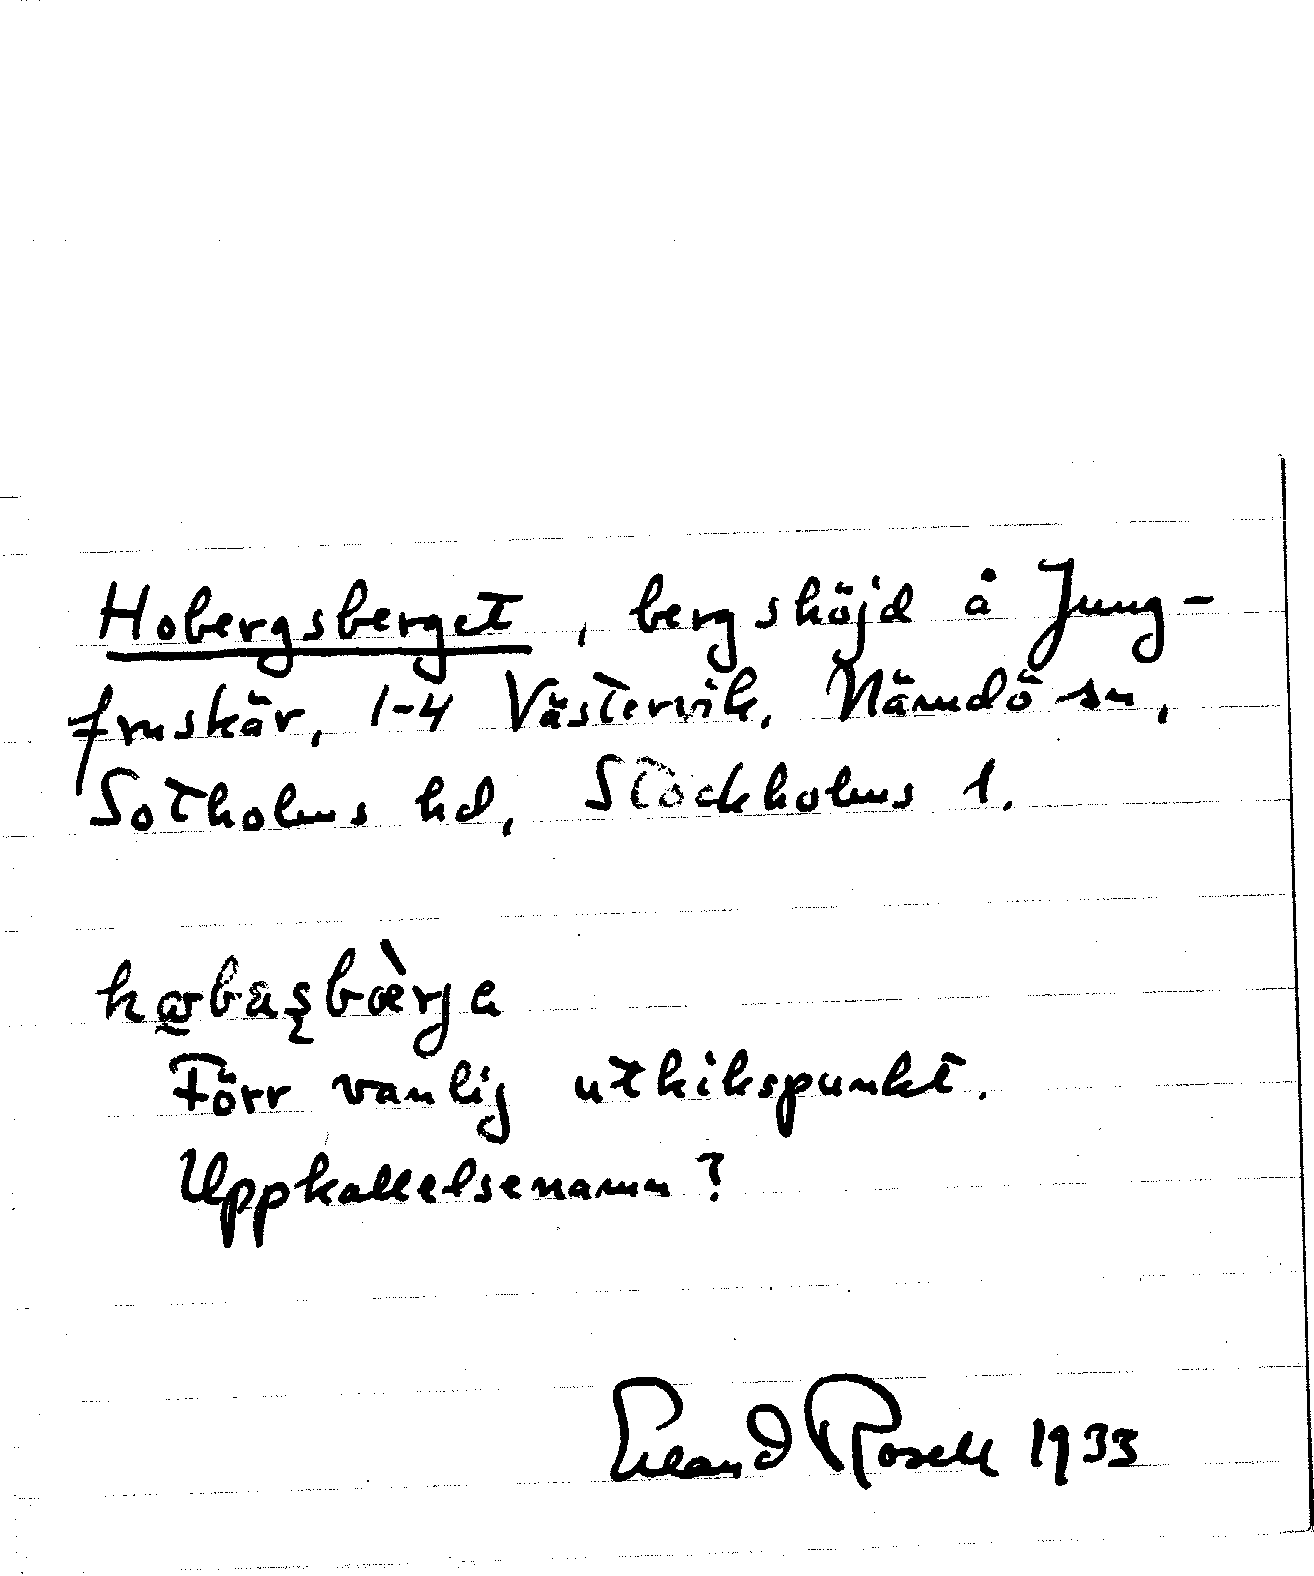 Hobergsberget, bergshöjd å Jung-
fruskär, 1-4 Västervik, Nämdö sn,
Sotholms hd, Stockholms l.
Förr vanlig utkikspunkt.
Uppkallelsenamn?
Erland Rosell 1933